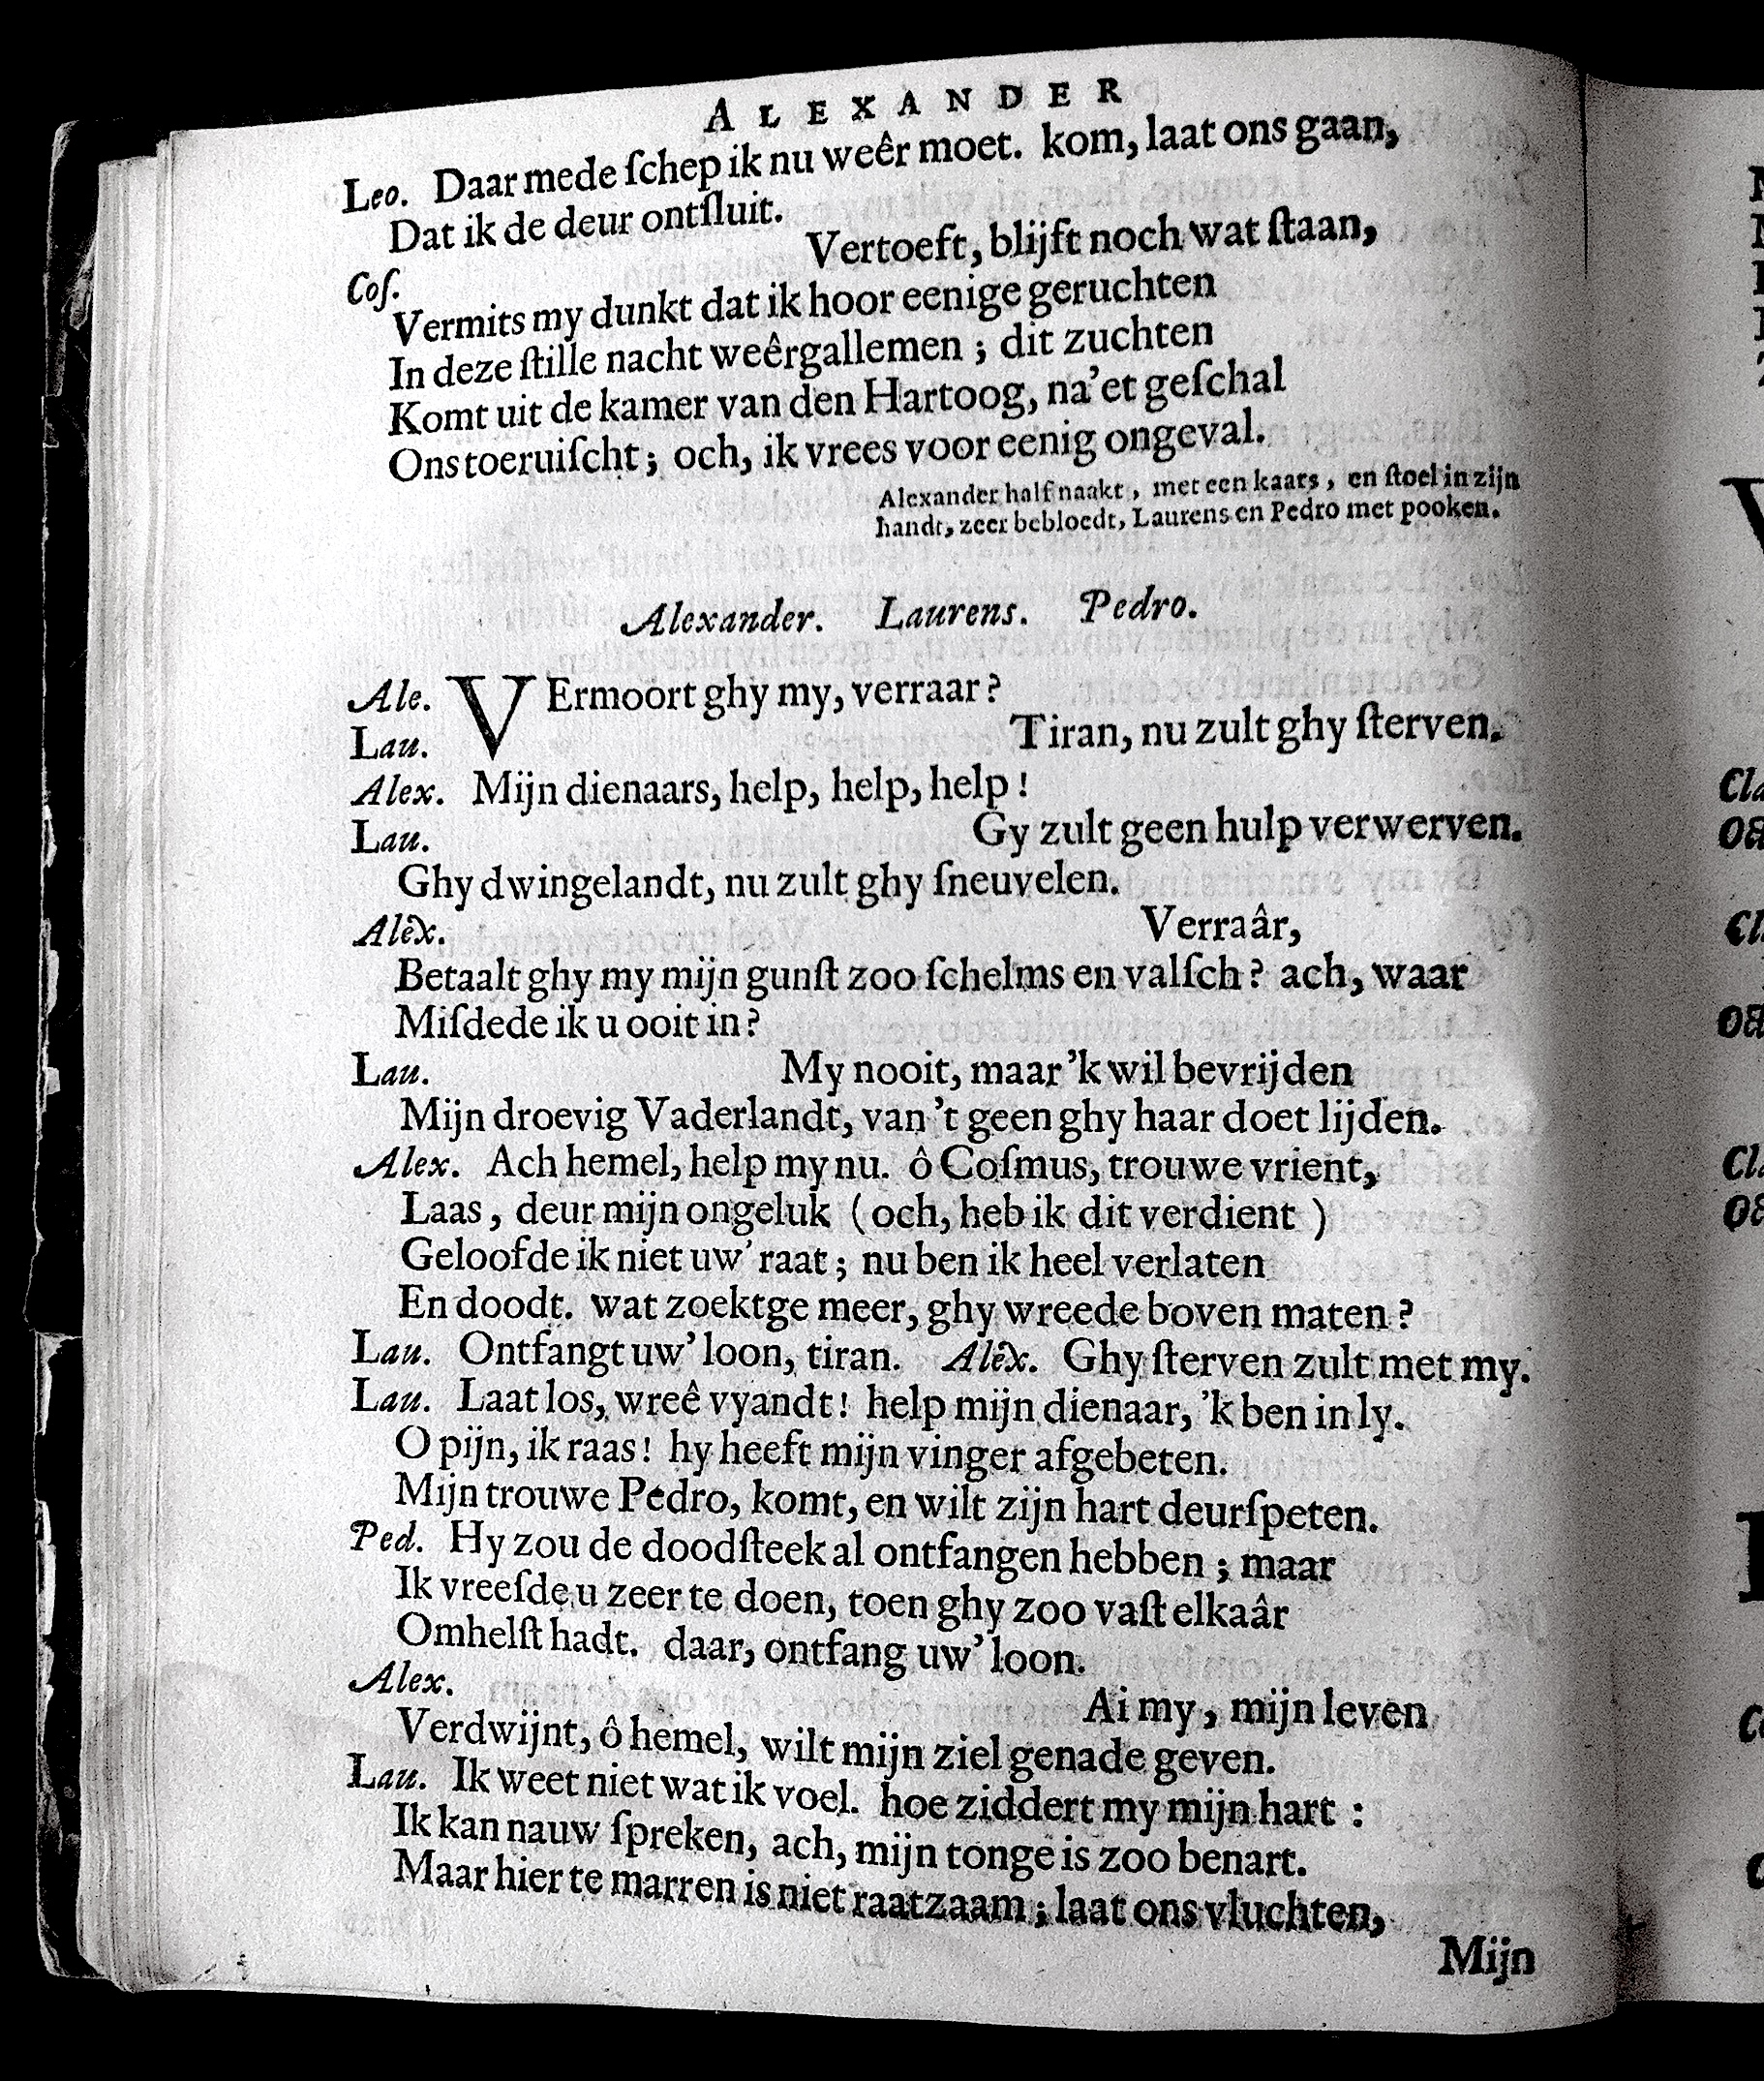 ALEXANDER
Leo. Daar mede ſchep ik nu weêr moet. kom, laat ons gaan,
Dat ik de deur ontſluit.
Coſ. Vertoeft, blijft noch wat ſtaan,
Vermits my dunkt dat ik hoor eenige geruchten
In deze ſtille nacht weêrgallemen ; dit zuchten
Komt uit de kamer van den Hartoog, na'et geſchal
Ons toeruiſcht ; och, ik vrees voor eenig ongeval.
Alexander half naakt, met een kaars, en ſtoel in zijn
handt, zeer bebloedt, Laurens en Pedro met pooken.
Alexander. Laurens. Pedro.
Ale. VErmoort ghy my, verraar ?
Lau. Tiran, nu zult ghy ſterven.
Alex. Mijn dienaars, help, help, help !
Lau. Gy zult geen hulp verwerven.
Ghy dwingelandt, nu zult ghy ſneuvelen.
Alex. Verraâr,
Betaalt ghy my mijn gunſt zoo ſchelms en valſch ? ach, waar
Miſdede ik u ooit in ?
Lau. My nooit, maar 'k wil bevrijden
Mijn droevig Vaderlandt, van 't geen ghy haar doet lijden.
Alex. Ach hemel, help my nu. ô Coſmus, trouwe vrient,
Laas, deur mijn ongeluk (och, heb ik dit verdient )
Geloofde ik niet uw' raat ; nu ben ik heel verlaten
En doodt. wat zoektge meer, ghy wreede boven maten ?
Lau. Ontfangt uw' loon, tiran. Alex. Ghy ſterven zult met my.
Lau. Laat los, wreê vyandt ! help mijn dienaar, 'k ben in ly.
O pijn, ik raas ! hy heeft mijn vinger afgebeten.
Mijn trouwe Pedro, komt, en wilt zijn hart deurſpeten.
Ped. Hy zou de doodſteek al ontfangen hebben ; maar
Ik vreeſde u zeer te doen, toen ghy zoo vaſt elkaâr
Omhelſt hadt. daar, ontfang uw' loon.
Alex. Ai my, mijn leven
Verdwijnt, ô hemel, wilt mijn ziel genade geven.
Lau. Ik weet niet wat ik voel. hoe ziddert my mijn hart :
Ik kan nauw ſpreken, ach, mijn tonge is zoo benart.
Maar hier te marren is niet raatzaam ; laat ons vluchten,
Mijn